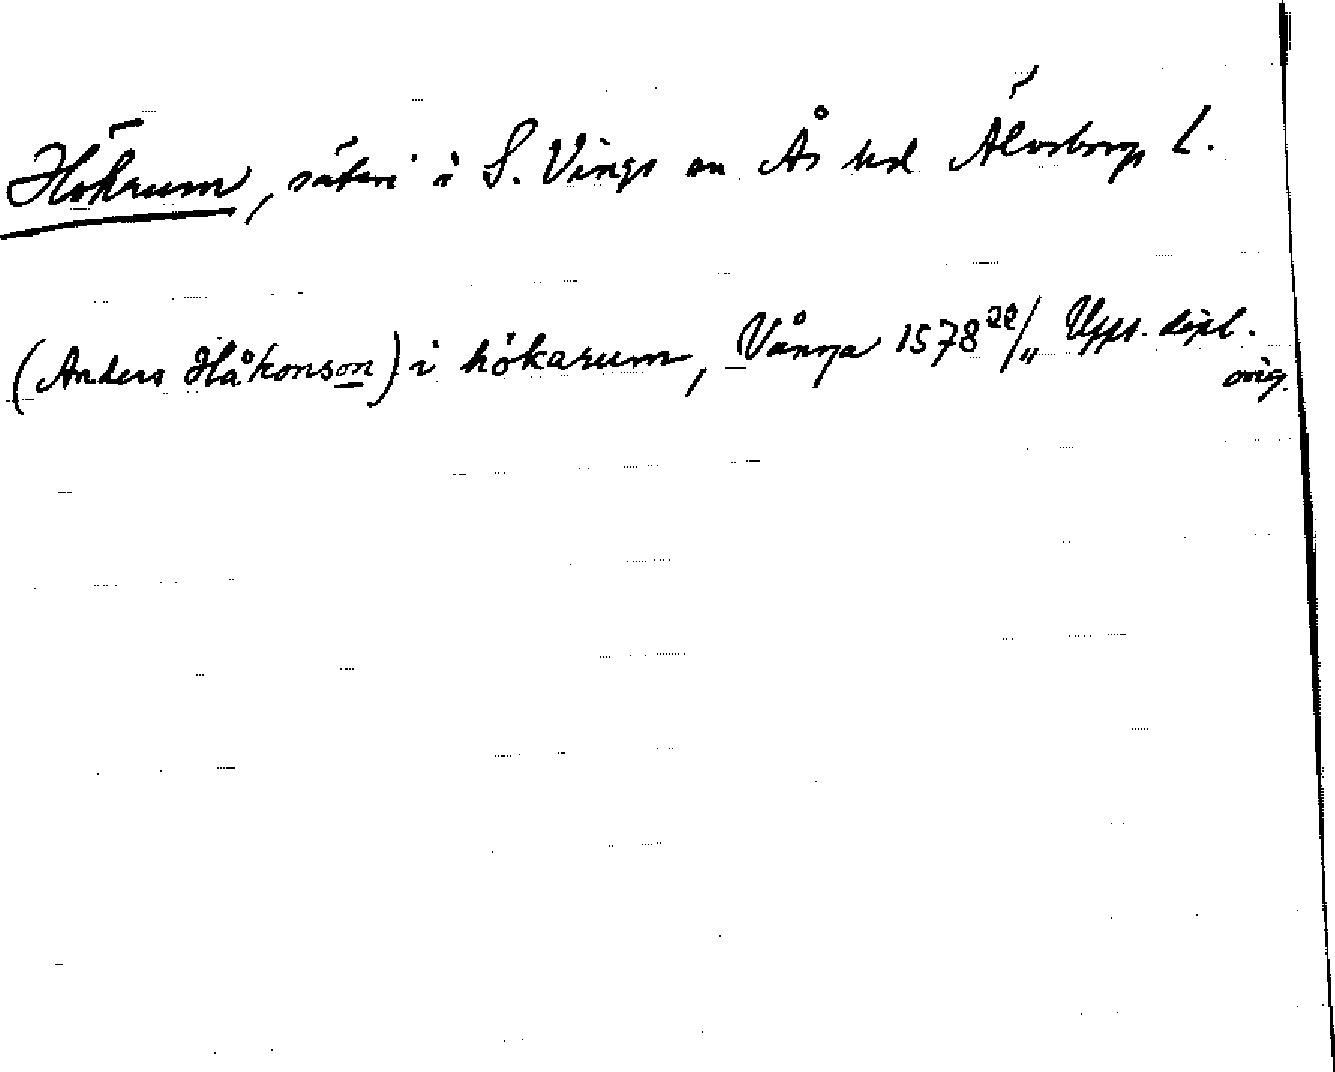 Hökrum, säteri i S. Vings sn Ås hd Älvsborgs l.
(Anders Håkonson) i hökarum, Vånga 1578 22/11 Upps. dipl.
orig.